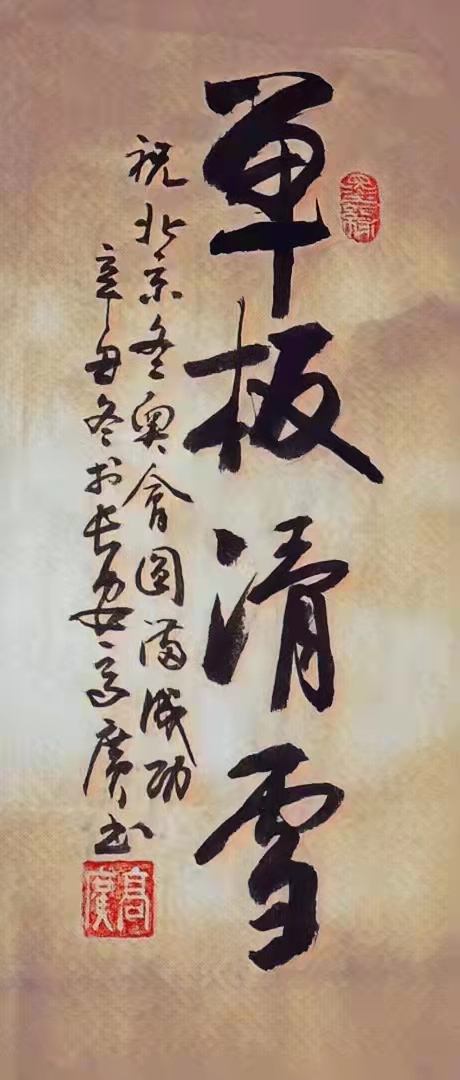 单板滑雪
祝北京冬奥會圆满成功
辛丑冬於长安高廣书
高廣